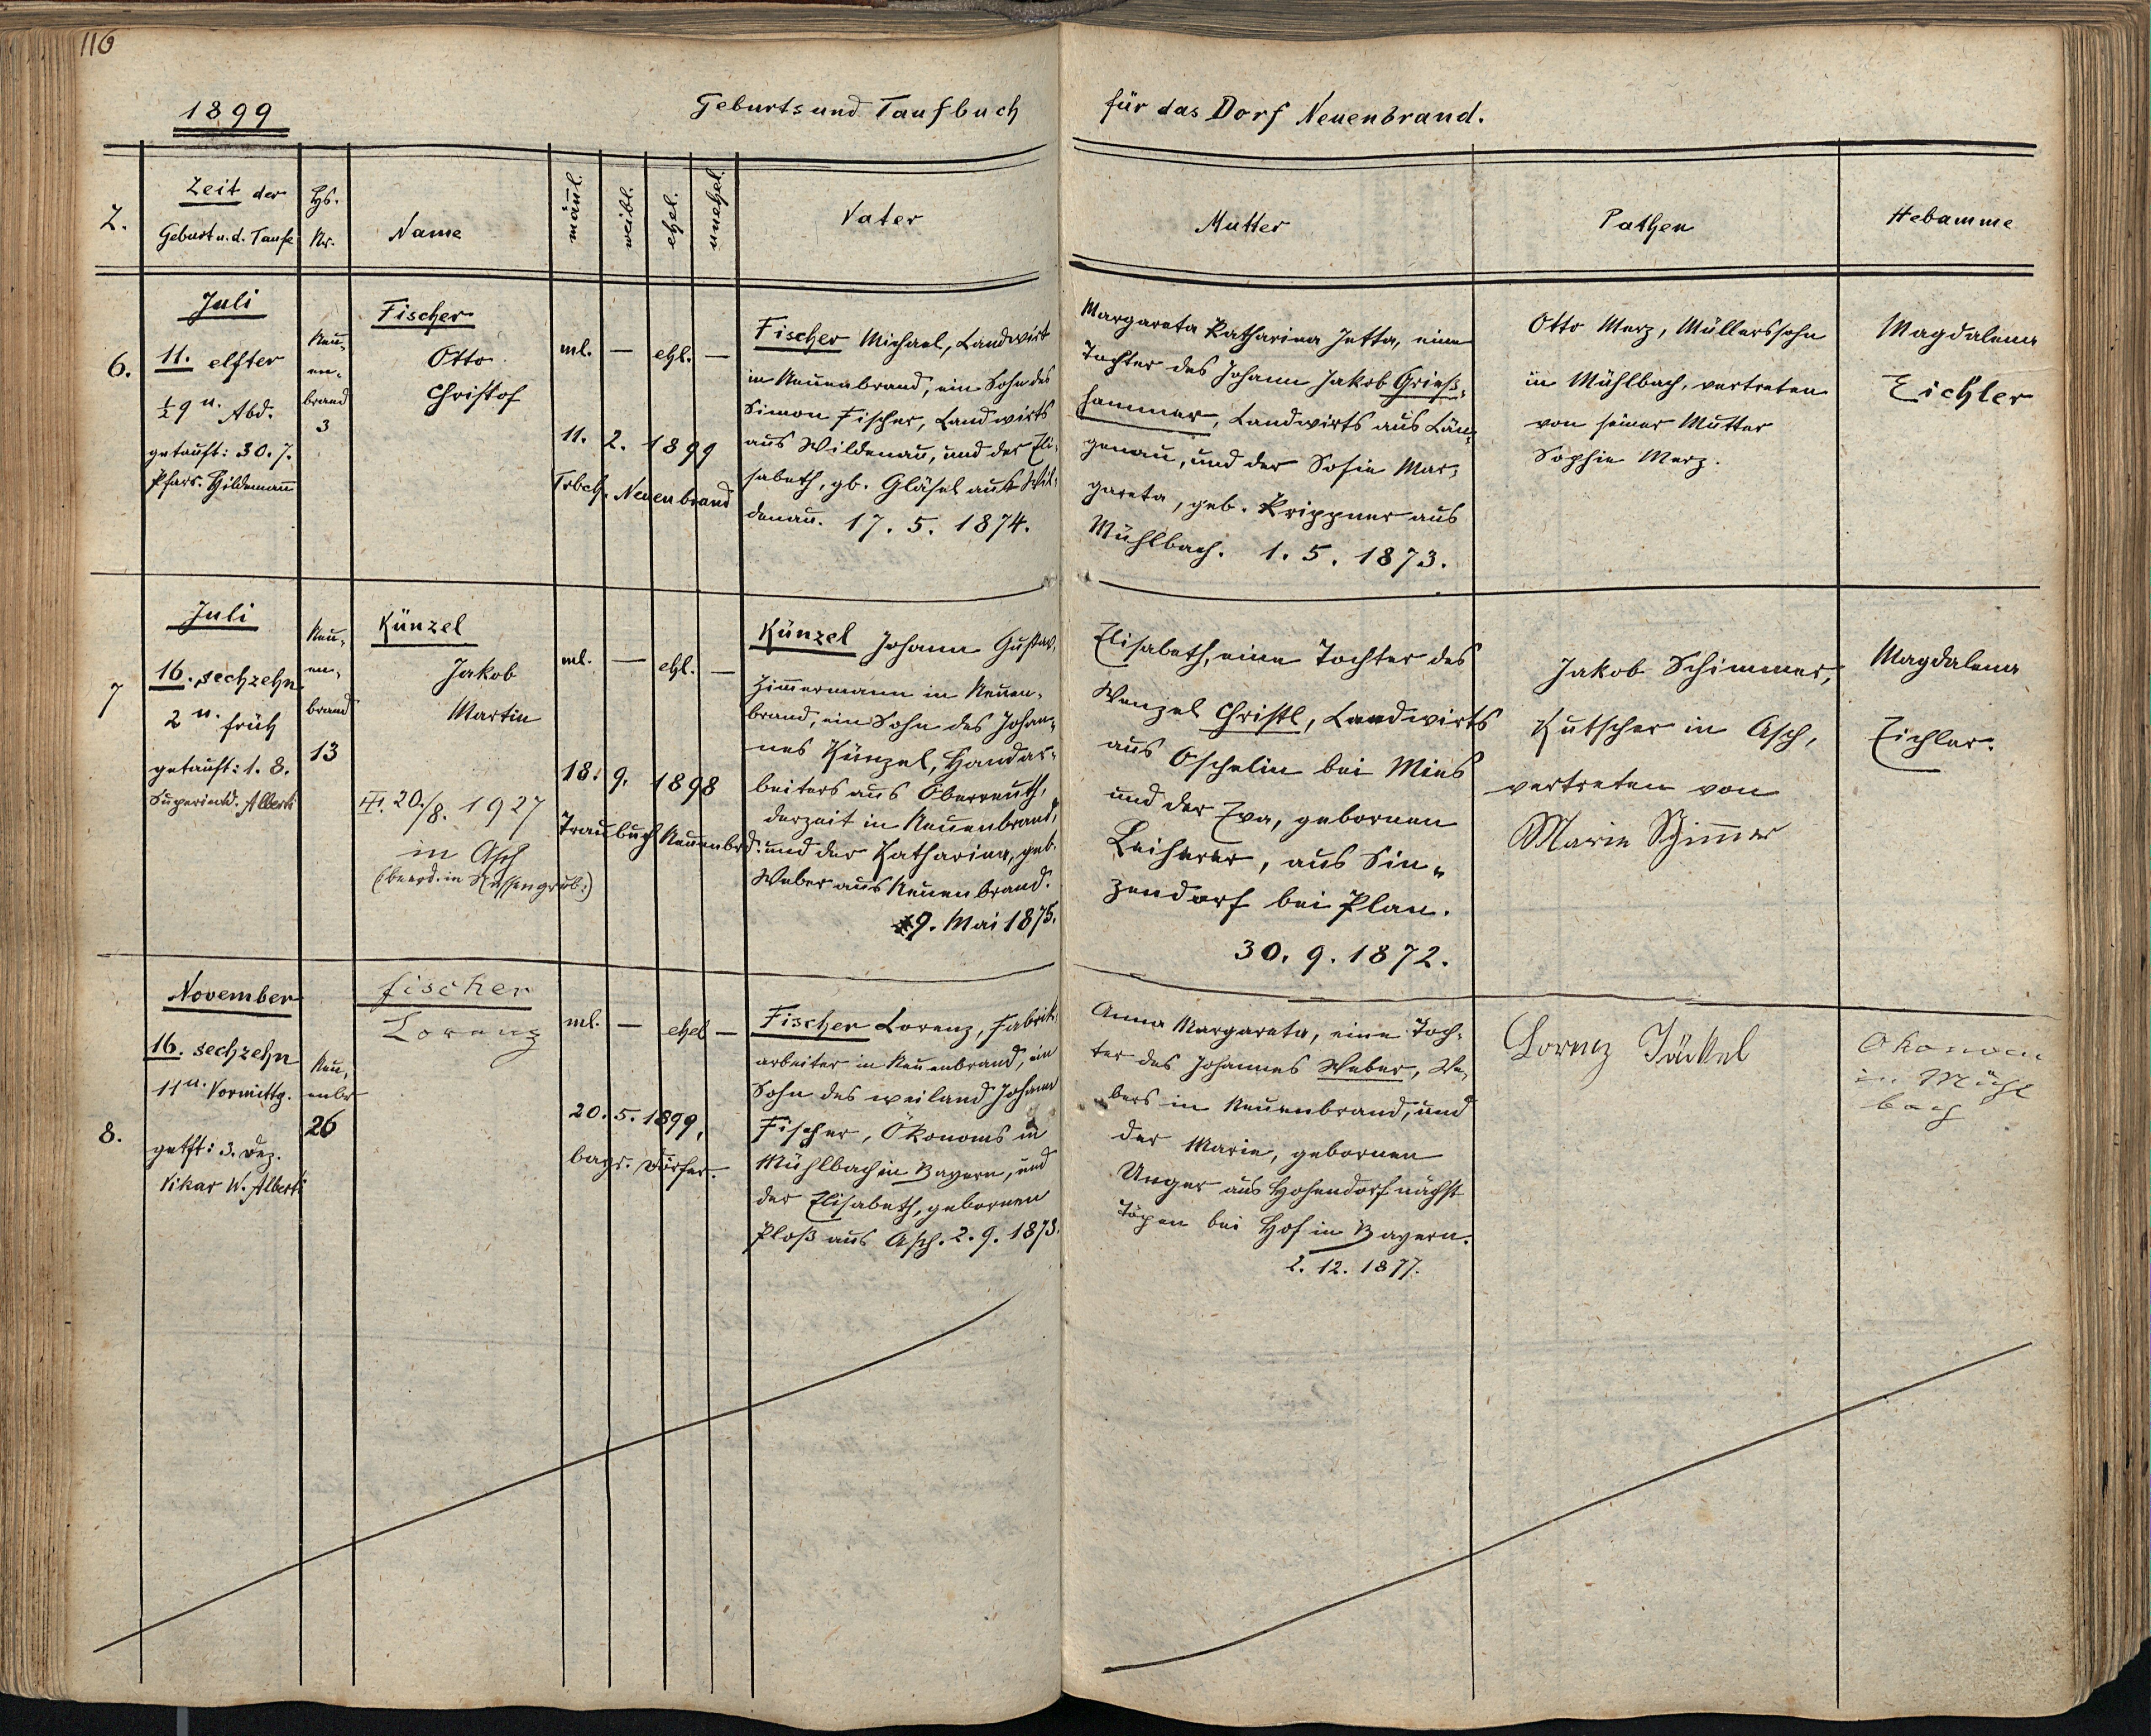 116
1899
Geburts und Taufbuch
für das Dorf Neuenbrand.
Z.
Zeit der
Geburt u. d. Taufe
Hs.
Nr.
Name
mäñl.
weibl.
ehel.
unehel.
Vater
Mutter
Pathen
Hebamme
6.
Juli
11. elfter
½9 u. Abd.
getauft: 30. 7.
Pfarr. Hildemann
Neu-
en-
brand
3
Fischer
Otto
Christof
ml. — ehl. —
11. 2. 1899
Trbch. Neuenbrand
Fischer Michael, Landwirt
in Neuenbrand, ein Sohn des
Simon Fischer, Landwirts
aus Wildenau, und der Eli-
sabeth, gb. Gläsel aus Wil-
denau. 17. 5. 1874.
Margareta Katharina Jetta, eine
Tochter des Johann Jakob Grieß-
hammer, Landwirts aus Län-
genau, und der Sofie Mar-
gareta, geb. Krippner aus
Mühlbach. 1. 5. 1873.
Otto Merz, Müllerssohn
in Mühlbach, vertreten
von seiner Mutter
Sophie Merz.
Magdalena
Eichler
7
Juli
16. sechzehn
2 u. früh
getauft: 1. 8.
Superintd. Alberti
Neu-
en-
brand
13
Künzel
Jakob
Martin
20./8. 1927
in Asch
(beerd. in Nassengrub.)
ml. — ehl. —
18. 9. 1898
Traubuch Neuenbrd.
Künzel Johann Gustav,
Zimmermann in Neuen-
brand, ein Sohn des Johan-
nes Künzel, Handar-
beiters aus Oberreuth,
derzeit in Neuenbrand,
und der Katharina, geb.
Weber aus Neuenbrand.
*9. Mai 1875.
Elisabeth, eine Tochter des
Wenzel Christl, Landwirts
aus Oschelin bei Mies
und der Eva, gebornen
Leiherer, aus Sin-
zendorf bei Plan.
30. 9. 1872.
Jakob Schimmer,
Kutscher in Asch,
vertreten von
Marie Schimmer
Magdalena
Eichler.
8.
November
16. sechzehn
11 u. Vormittg.
getft: 3. Dez.
Vikar W. Alberti
Neu-
enbr
26
Fischer
Lorenz
ml. — ehel —
20. 5. 1899,
bayr. Dörfer.
Fischer Lorenz, Fabrik-
arbeiter in Neuenbrand, ein
Sohn des weiland Johann
Fischer, Ökonoms in
Mühlbach in Bayern, und
der Elisabeth, gebornen
Ploß aus Asch. 2. 9. 1873.
Anna Margareta, eine Toch-
ter des Johannes Weber, We-
bers in Neuenbrand, und
der Marie, gebornen
Unger aus Hohendorf nächst
Töpen bei Hof in Bayern.
2. 12. 1877.
Lorenz Jäckel
Ökonom
in Mühl
bach